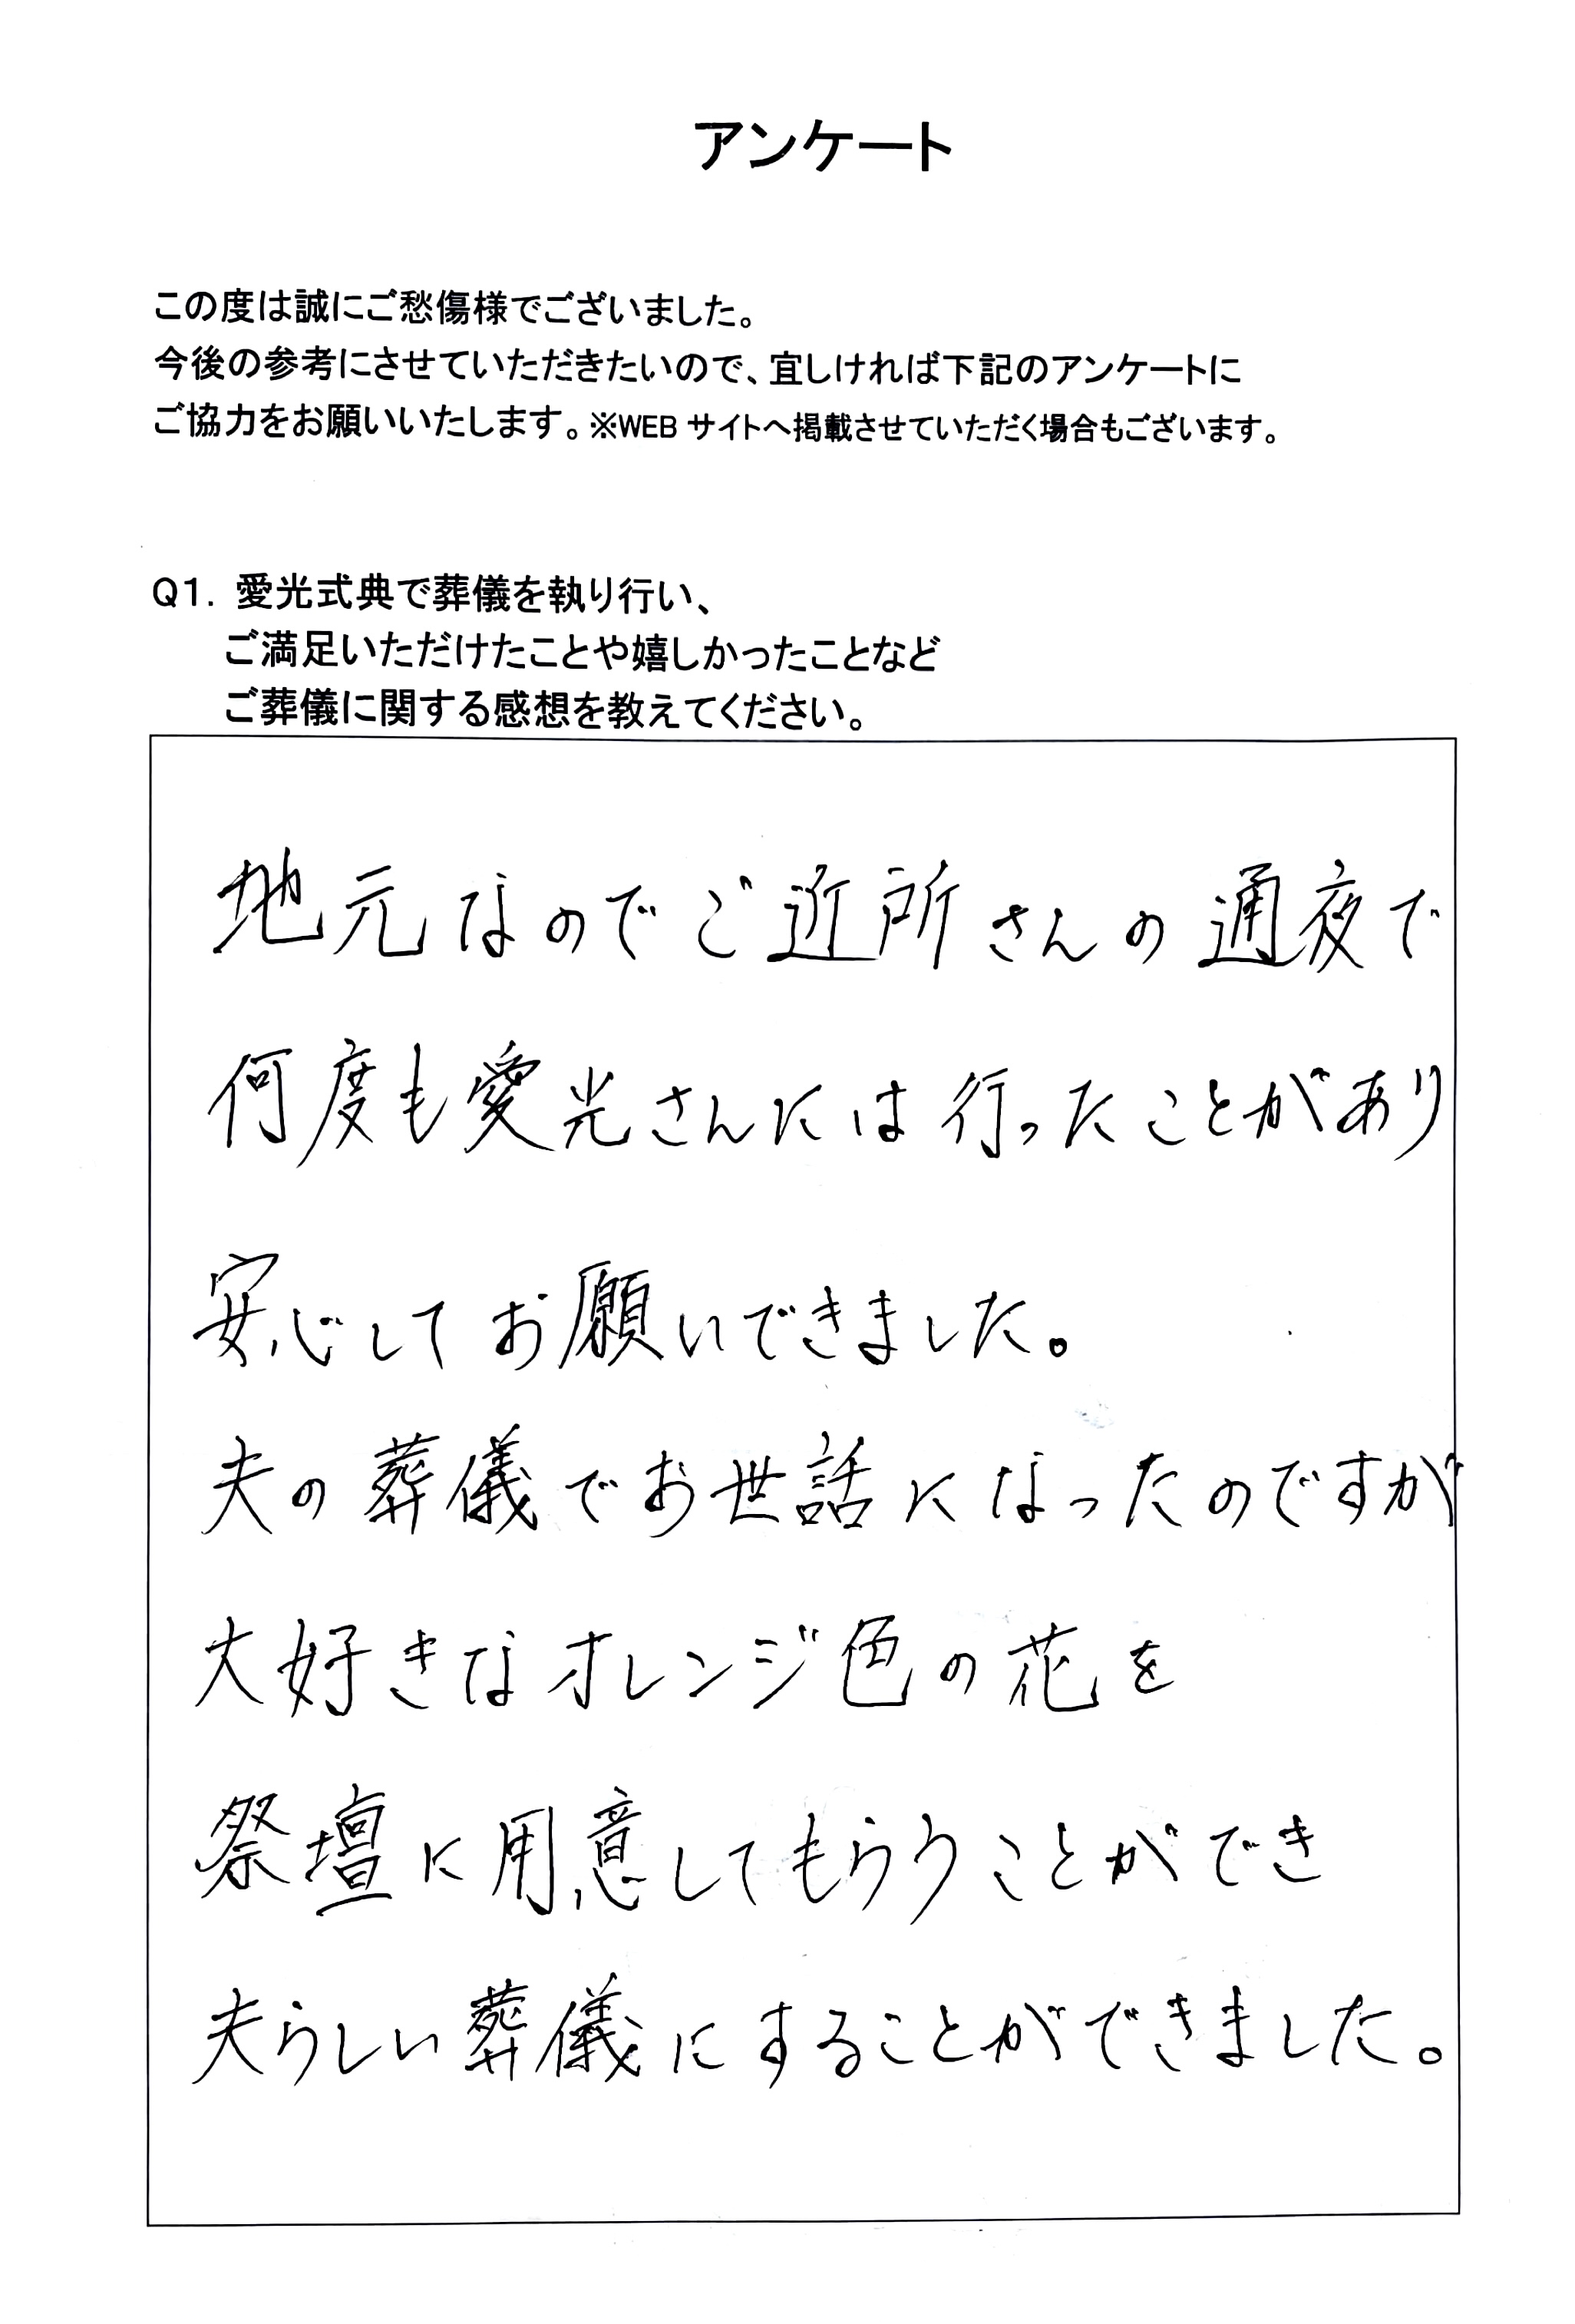 アンケート
この度は誠にご愁傷様でございました。
今後の参考にさせていただきたいので、宜しければ下記のアンケートに
ご協力をお願いいたします。※WEB サイトへ掲載させていただく場合もございます。
Q1. 愛光式典で葬儀を執り行い、
ご満足いただけたことや嬉しかったことなど
ご葬儀に関する感想を教えてください。
地元なのでご近所さんの通夜で
何度も愛光さんには行ったことがあり
安心してお願いできました。
夫の葬儀でお世話になったのですが
大好きなオレンジ色の花を
祭壇に用意してもらうことができ
夫らしい葬儀にすることができました。